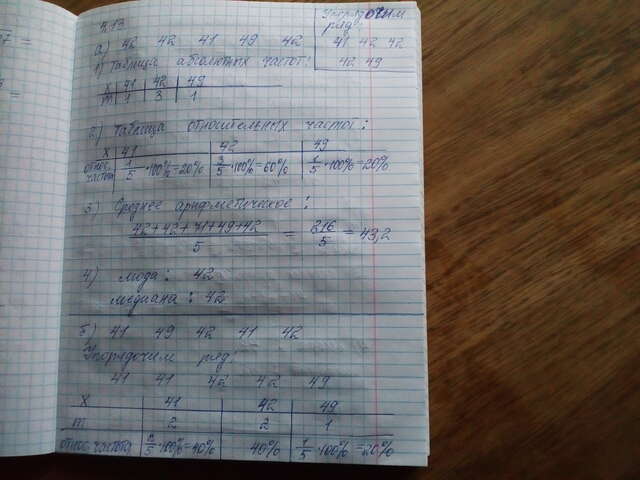 7 =
5.13
Упорядочим
ряд:
а) 42 42 41 49 42
41 42 42
42 49
1) таблица абсолютных частот:
x 41 42 49
m 1 3 1
2) таблица относительных частот:
x 41 42 49
относ. частота 1/5 · 100% = 20% 3/5 · 100% = 60% 1/5 · 100% = 20%
3) Среднее арифметическое:
42 + 42 + 41 + 49 + 42 / 5 = 216 / 5 = 43,2
4) мода: 42
медиана: 42
б) 41 49 42 41 42
Упорядочим ряд:
41 41 42 42 49
x 41 42 49
m 2 2 1
относ. частота 2/5 · 100% = 40% 40% 1/5 · 100% = 20%